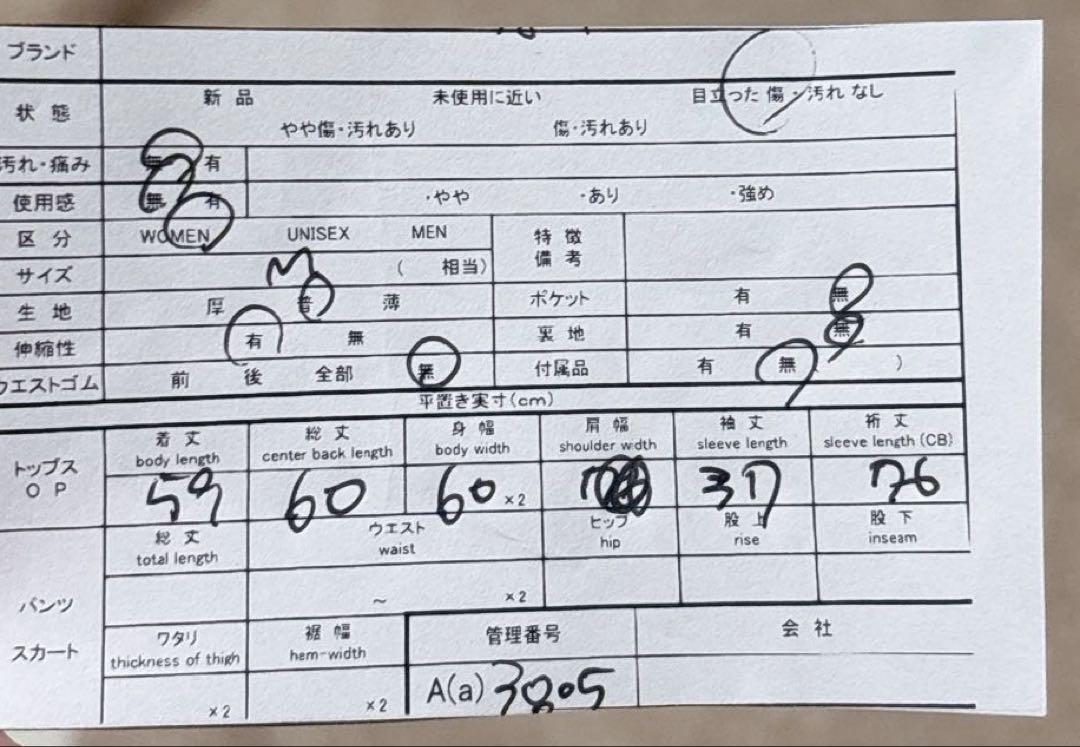 ブランド
状態 新品 未使用に近い 目立った傷・汚れなし
やや傷・汚れあり 傷・汚れあり
汚れ・痛み 無 有
使用感 無 有 ・やや ・あり ・強め
区分 WOMEN UNISEX MEN 特徴
備考
サイズ M ( 相当)
生地 厚 普 薄 ポケット 有 無
伸縮性 有 無 裏地 有 無
ウエストゴム 前 後 全部 無 付属品 有 無 )
平置き実寸(cm)
トップス
OP
着丈 総丈 身幅 肩幅 袖丈 裄丈
body length center back length body width shoulder width sleeve length sleeve length (CB)
59 60 60 ×2 37 76
総丈 ウエスト ヒップ 股上 股下
total length waist hip rise inseam
パンツ ~ ×2
スカート
ワタリ 裾幅 管理番号 会社
thickness of thigh hem-width
×2 ×2 A(a) 3805